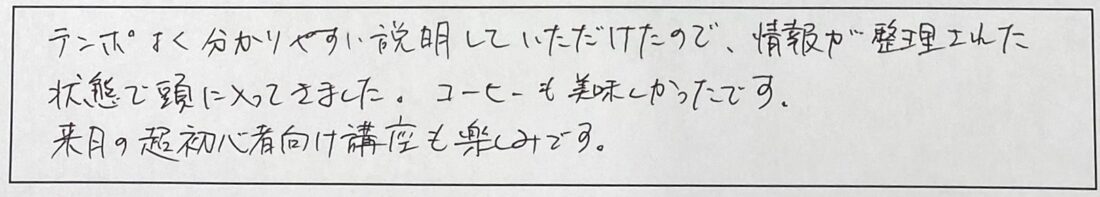 テンポよく分かりやすい説明していただけたので、情報が整理された
状態で頭に入ってきました。コーヒーも美味しかったです。
来月の超初心者向け講座も楽しみです。